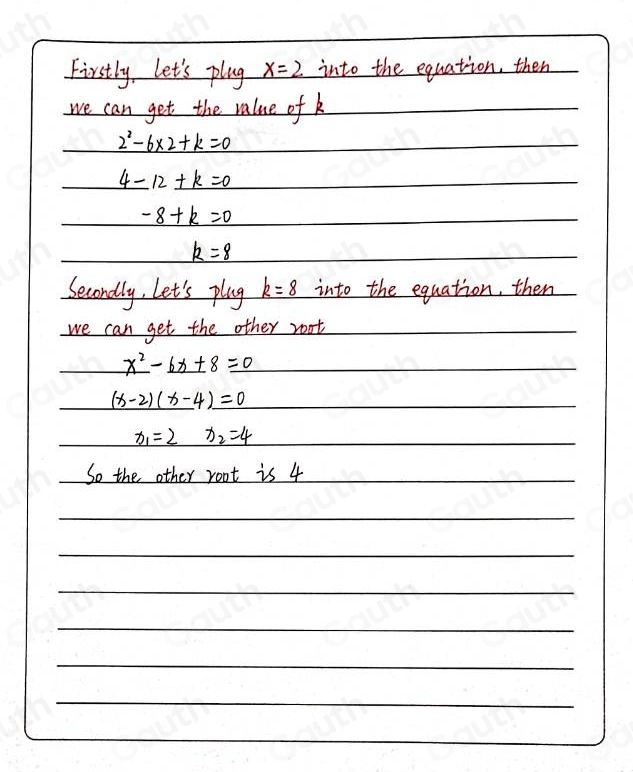 Firstly, let's plug x=2 into the equation, then
we can get the value of k
2²-6×2+k=0
4-12+k=0
-8+k=0
k=8
Secondly, Let's plug k=8 into the equation, then
we can get the other root
x²-6x+8=0
(x-2)(x-4)=0
x₁=2 x₂=4
So the other root is 4